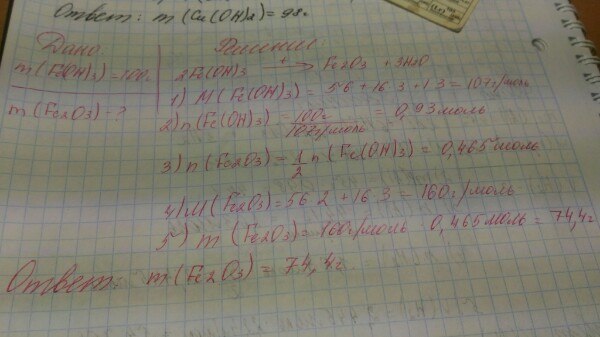 Ответ: m(Cu(OH)2) = 98г
Дано: Решение:
m(Fe(OH)3) = 100г 2Fe(OH)3 →t Fe2O3 + 3H2O
m(Fe2O3) - ? 1) M(Fe(OH)3) = 56 + 16·3 + 1·3 = 107г/моль
2) n(Fe(OH)3) = 100г/107г/моль = 0,93моль
3) n(Fe2O3) = 1/2 n(Fe(OH)3) = 0,465моль
4) M(Fe2O3) = 56·2 + 16·3 = 160г/моль
5) m(Fe2O3) = 160г/моль · 0,465моль = 74,4г
Ответ: m(Fe2O3) = 74,4г